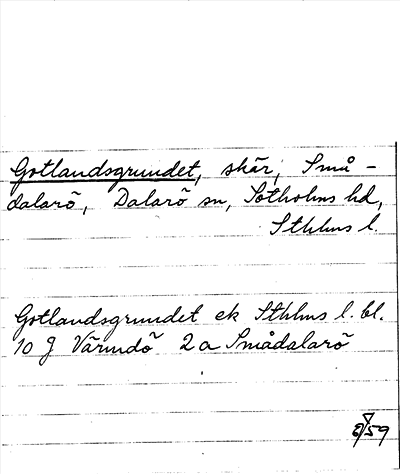 Gotlandsgrundet, skär, Små-
dalarö, Dalarö sn, Sotholms hd,
Sthlms l.
Gotlandsgrundet ek Sthlms l. bl.
10 J Värmdö 2 a Smådalarö